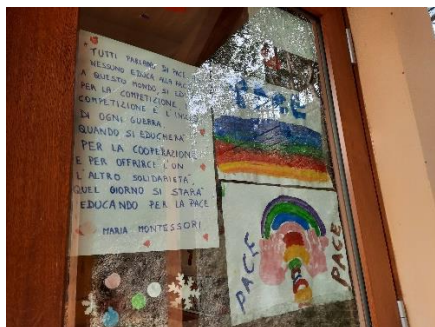 TUTTI PARLANO DI PACE
NESSUNO EDUCA ALLA PACE
A QUESTO MONDO, SI EDUCA
PER LA COMPETIZIONE
COMPETIZIONE È L'INIZIO
DI OGNI GUERRA.
QUANDO SI EDUCHERÀ
PER LA COOPERAZIONE
E PER OFFRIRCI CON
L'ALTRO SOLIDARIETÀ,
QUEL GIORNO SI STARÀ
EDUCANDO PER LA PACE
MARIA MONTESSORI
PACE
PACE
PACE